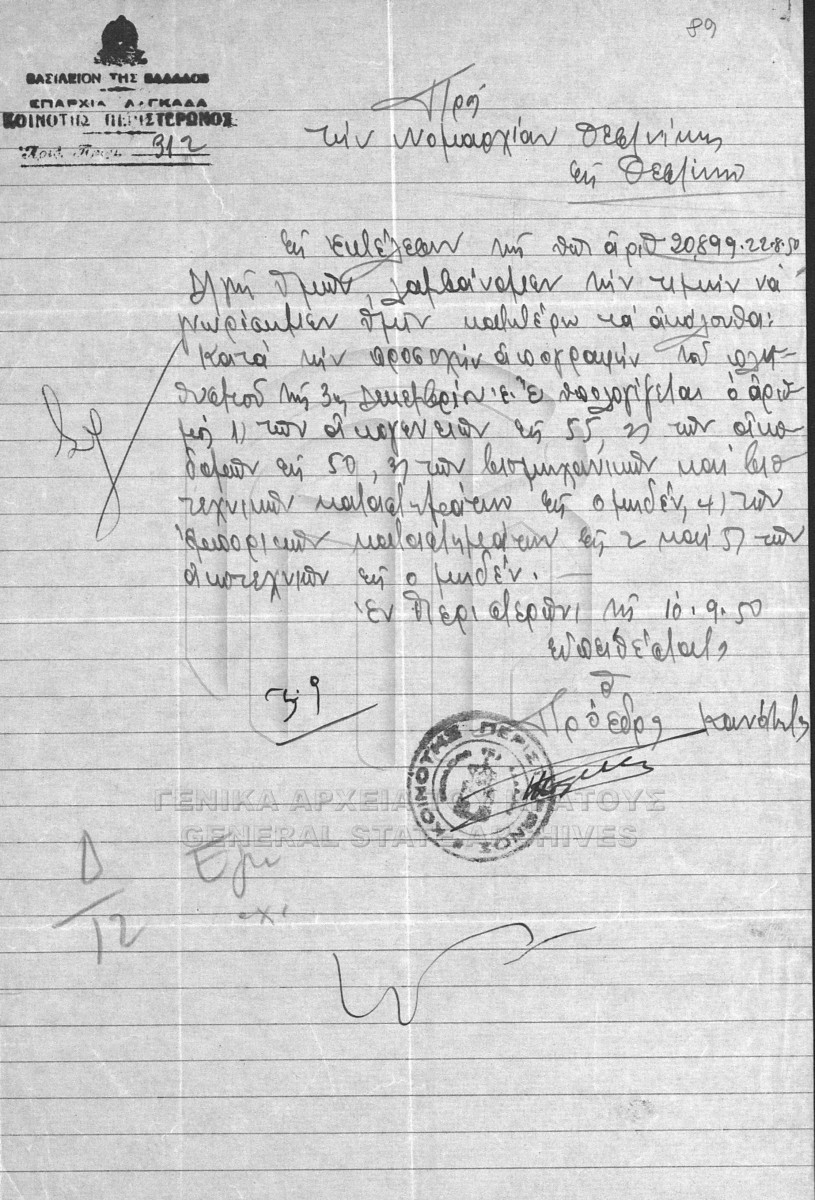 89
ΒΑΣΙΛΕΙΟΝ ΤΗΣ ΕΛΛΑΔΟΣ
ΕΠΑΡΧΙΑ ΛΑΓΚΑΔΑ
ΚΟΙΝΟΤΗΣ ΠΕΡΙΣΤΕΡΩΝΟΣ
Αριθ. Πρωτ. 312
Πρός
τήν Νομαρχίαν Θεσ/νίκης
εἰς Θεσ/νίκην
Εἰς ἐκτέλεσιν τῆς ὑπ' ἀριθ 20,899.22.8.50
Δ/γῆς ὑμῶν, λαμβάνομεν τήν τιμήν νά
γνωρίσωμεν ὑμῖν κατωτέρω τά ἀκόλουθα:
Κατά τήν προσεχῆ ἀπογραφήν τοῦ πλη-
θυσμοῦ τῆς 3ης Δεκεμβρίου ἔ.ἔ ὑπολογίζεται ὁ ἀριθ
μός 1) τῶν οἰκογενειῶν εἰς 55, 2) τῶν οἰκο
δομῶν εἰς 50, 3) τῶν βιομηχανικῶν καί βιο
τεχνικῶν καταστημάτων εἰς 0 μηδέν, 4) τῶν
ἐμπορικῶν καταστημάτων εἰς 2 καί 5) τῶν
οἰκοτεχνιῶν εἰς 0 μηδέν. —
Ἐν Περιστερῶνι τῆς 10.9.50
εὐπειθέστατος
Ὁ
Πρόεδρος Κοινότητος
ΚΟΙΝΟΤΗΣ ΠΕΡΙΣΤΕΡΩΝΟΣ
ΓΕΝΙΚΑ ΑΡΧΕΙΑ ΤΟΥ ΚΡΑΤΟΥΣ
GENERAL STATE ARCHIVES
Δ
12